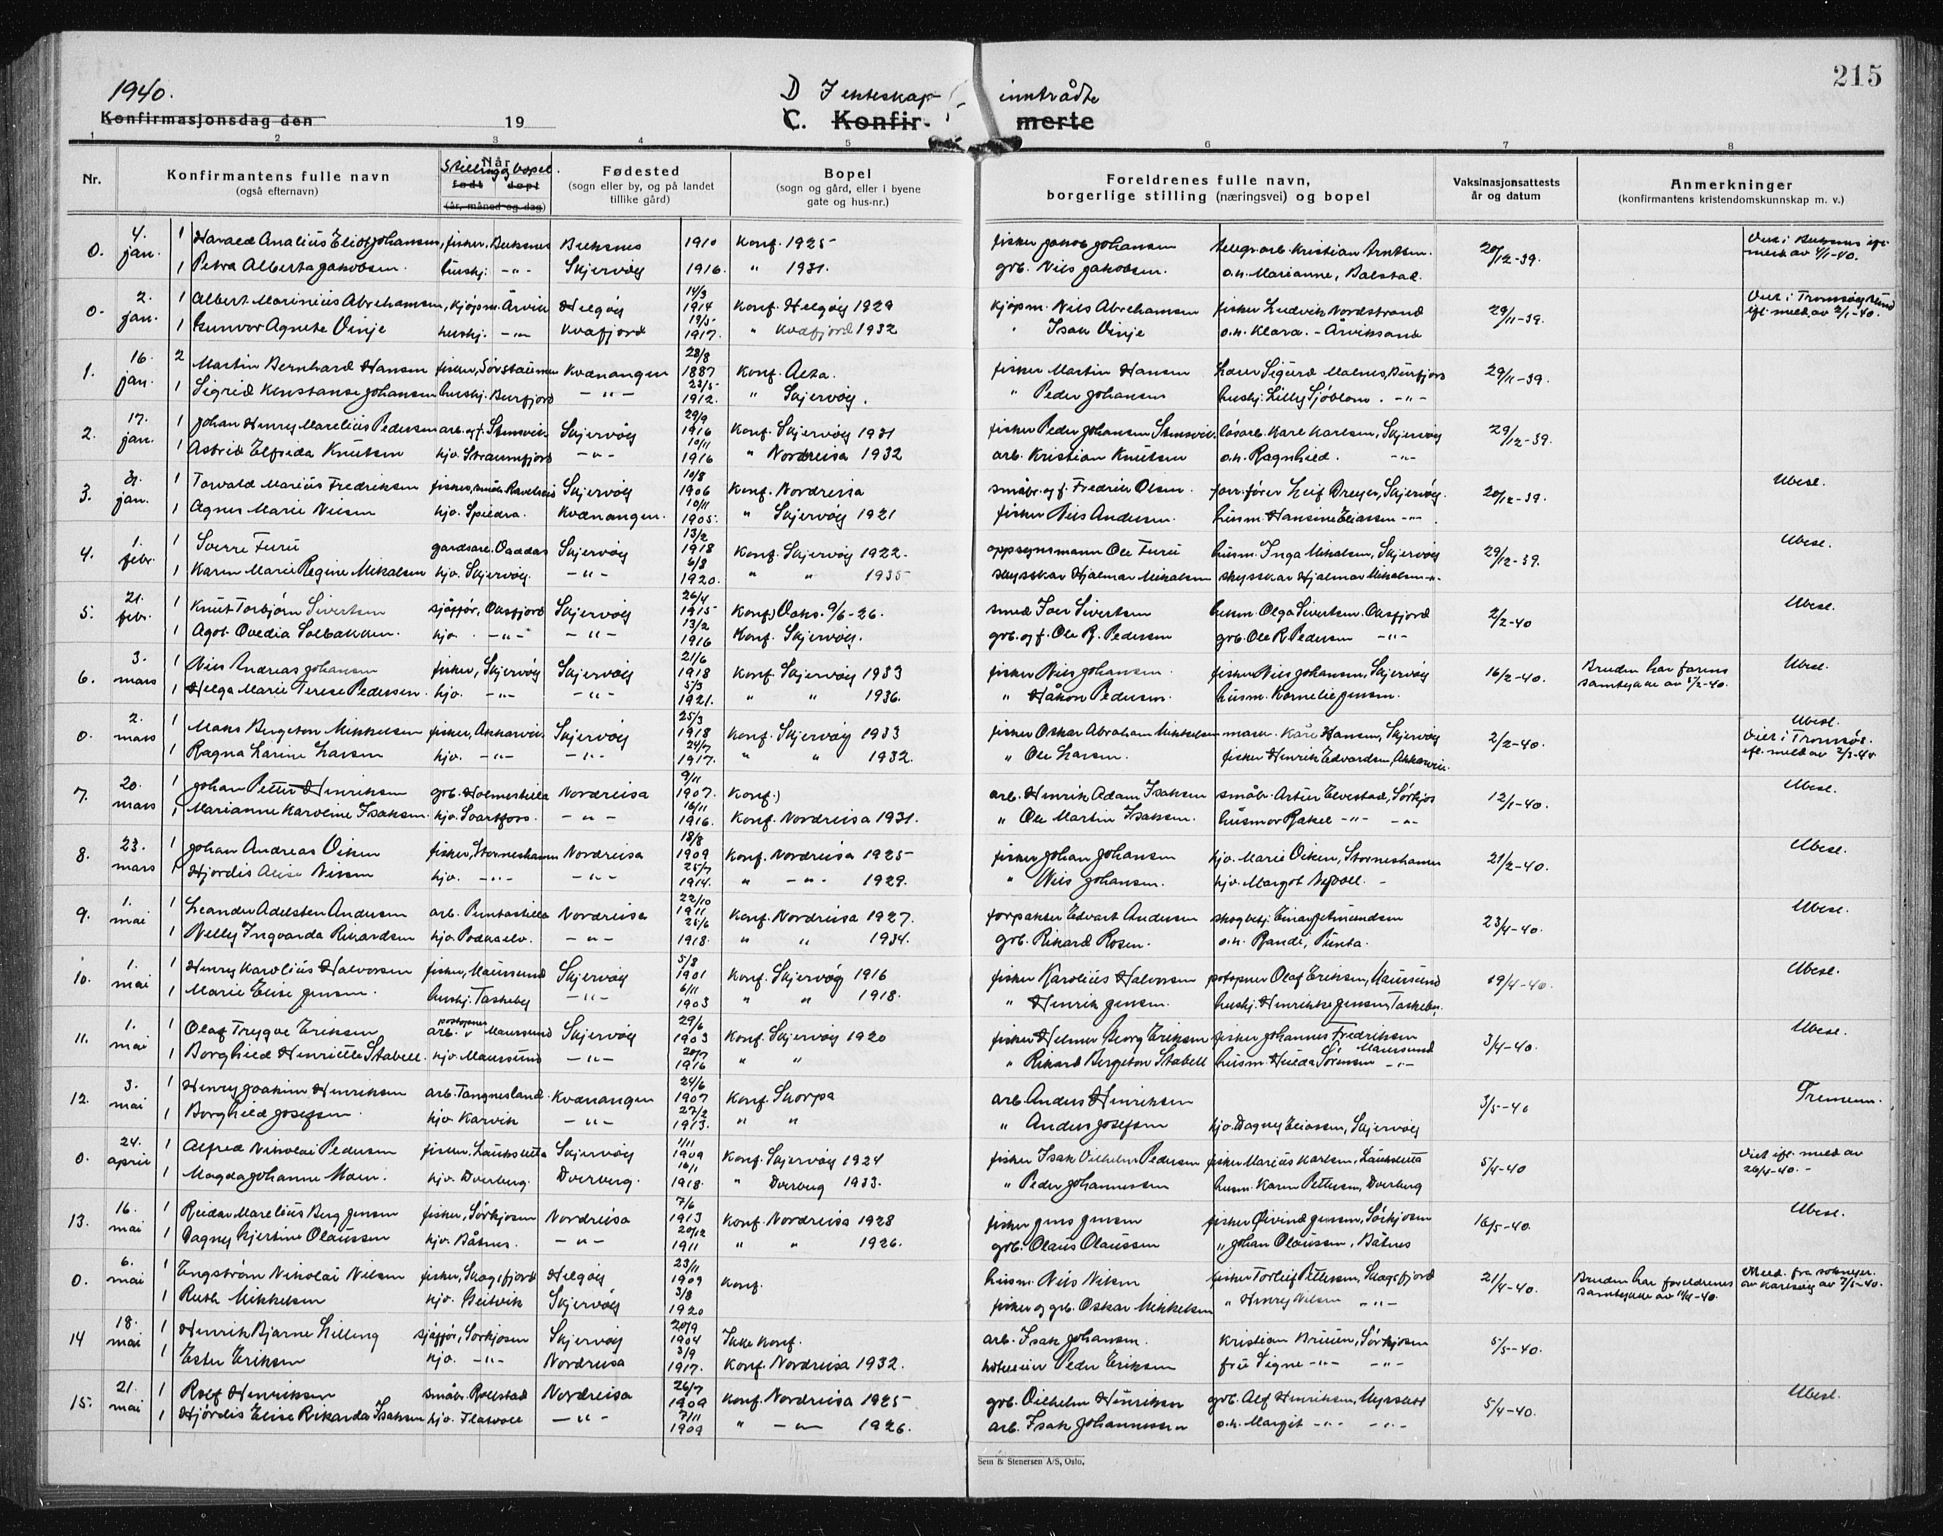 215
1940.
D I ekteskap inntrådte
Konfirmasjonsdag den 19
C. Konfir- merte
1 2 3 4 5 6 7 8
Nr.
Konfirmantens fulle navn
(også efternavn)
Når
Stilling og bopel.
født døpt
(år, måned og dag)
Fødested
(sogn eller by, og på landet
tillike gård)
Bopel
(sogn og gård, eller i byene
gate og hus-nr.)
Foreldrenes fulle navn,
borgerlige stilling (næringsvei) og bopel
Vaksinasjonsattests
år og datum
Anmerkninger
(konfirmantens kristendomskunnskap m. v.)
0. 4. jan. 1 Harald Analius Eliot Johansen, fisker, Buksnes Buksnes 1910 Konf. 1925 fisker Jakob Johansen telegr.arb. Kristian Arntsen. 20/12-39. Viet i Buksnes ifl. meld av 4/1-40.
1 Petra Alberta Jakobsen. hushj. -"- Skjervøy 1916. " 1931. grb. Nils Jakobsen. o.h. Marianne, Balstad.
0. 2. jan. 1 Albert Marinius Abrahamsen, kjøpm. Årvik Helgøy 14/3 1914 Konf. Helgøy 1929 kjøpm. Nils Abrahamsen fisker Ludvik Nordstrand 29/11-39. Viet i Tromsøysund ifl. meld av 2/1-40.
1 Gunvor Agnete Vinje hushj. -"- Kvæfjord 19/5 1917. " Kvæfjord 1932 " Isak Vinje o.h. Klara. - Årviksand
1. 16. jan. 2 Martin Bernhard Hansen fisker, Sørstraumen Kvænangen 28/8 1887 Konf. Alta. fisker Martin Hansen lærer Sigurd Malnes, Burfjord 29/11-39.
1 Sigrid Konstanse Johansen hushj. Burfjord -"- 22/5 1912. " Skjervøy. " Peder Johansen hushj. Lilly Sjøblom. -"-
2. 17. jan. 1 Johan Henry Marelius Pedersen arb. og f. Stensvik. Skjervøy 29/9 1916 Konf. Skjervøy 1931 fisker Peder Johansen Stensvik. løsarb. Karl Karlsen, Skjervøy 29/12-39.
1 Astrid Elfrida Knutsen hjv. Straumfjord -"- 10/11 1916 " Nordreisa 1932 arb. Kristian Knutsen o.h. Ragnhild. -"-
3. 31. jan. 1 Torvald Marius Fredriksen fisker, småbr. Skjervøy 10/8 1906 Konf. Nordreisa småbr. og f. Fredrik Olsen. forr.fører Leif Dreyer, Skjervøy. 20/12-39. Ubesl.
1 Agnes Marie Nilsen hjv. Spildra. Kvænangen. 10/11 1905. " Skjervøy 1921 fisker Nils Andersen. husm. Hansine Eliassen -"-.
4. 1. febr. 1 Sverre Furu gardsarb. Skjervøy 13/2 1918 Konf. Skjervøy 1922. oppsynsmann Ole Furu husm. Inga Mikalsen, Skjervøy 29/12-39. Ubesl.
1 Karen Marie Regine Mikalsen hjv. Skjervøy. -"- 6/8 1920. " " 1935 skysskar Hjalmar Mikalsen skysskar Hjalmar Mikalsen -"-
5. 21. febr. 1 Knut Torbjørn Sivertsen sjåfør, Oksfjord Skjervøy 26/4 1915 Konf) Osks. 9/6-26. smed Ivar Sivertsen husm. Olga Sivertsen. Oksfjord 2/2-40 Ubesl.
1 Agot Ovedia Solbakken. hjv. -"- -"- 13/2 1916 Konf. Skjervøy. grb. og f. Ole R. Pedersen grb. Ole R. Pedersen -"-
6. 3. mars 1 Nils Andreas Johansen fisker, Skjervøy Skjervøy 21/6 1918 Konf. Skjervøy 1933 fisker Nils Johansen. fisker Nils Johansen, Skjervøy 16/2-40. Bruden har farens samtykke av 5/2-40. Ubesl.
1 Helga Marie Terese Pedersen. hjv. -"- -"- 5/3 1921. " " 1936. " Håkon Pedersen. husm. Kornelie Jensen.
0. 2. mars 1 Maks Bergeton Mikkelsen fisker, Akkarvik. Skjervøy 25/3 1918 Konf. Skjervøy 1933 fisker Oskar Abraham Mikkelsen mask. Kåre Hansen, Skjervøy 2/2-40. Ubesl. Viet i Tromsø. ifl. meld av 2/3-40
1 Ragna Larine Larsen hjv. -"- -"- 24/7 1917. " " 1932. " Ole Larsen. fisker Henrik Edvardsen Akkarvik.
7. 20. mars 1 Johan Petter Henriksen grb. Holmeslilla Nordreisa 9/11 1907. Konf.) arb. Henrik Adam Isaksen småbr. Artur Elvestad, Sørkjos 12/1-40. Ubesl.
1 Marianne Karoline Isaksen. hjv. Svartfors. -"- 16/11 1916. Konf. Nordreisa 1931. " Ole Martin Isaksen. husmor Rakel -"- -"-
8. 23. mars 1 Johan Andreas Oiken fisker, Storneshamn Nordreisa 18/8 1909 Konf. Nordreisa 1925 fisker Johan Johansen hjv. Marie Oiken, Storneshamn 21/2-40. Ubesl.
1 Hjørdis Alise Nilsen hjv. -"- -"- 25/7 1914. " -"- 1929. " Nils Johansen. hjv. Margot Nervoll. -
9. 1. mai 1 Leander Adelsten Andersen arb. Puntaslilla Nordreisa 22/10 1911 Konf. Nordreisa 1927. forpakter Edvart Andersen skogbetj. Einar Jetmundsen 23/4-40. Ubesl.
1 Nelly Ingvarda Rikardsen hjv. Potkaelv. -"- 25/6 1918. " " 1934. grb. Rikard Rosen. o.h. Randi, Punta.
10. 1. mai 1 Henry Karolius Halvorsen fisker, Maursund Skjervøy 5/8 1901 Konf. Skjervøy 1916 fisker Karolius Halvorsen postopner Olaf Eriksen, Maursund 19/4-40. Ubesl.
1 Marie Elise Jensen. hushj. Taskeby -"- 6/11 1903 " " 1918. " Henrik Jensen. hushj. Henrikke Jensen, Taskeby.
11. 1. mai 1 Olaf Trygve Eriksen arb. postopner Maursund Skjervøy 29/6 1903 Konf. Skjervøy 1920 fisker Helmer Georg Eriksen fisker Johannes Fredriksen Maursund 3/4-40. Ubesl.
1 Borghild Henriette Stabell. hjv. Maursund -"- 20/7 1916 " " " Rikard Bergeton Stabell husm. Hulda Sørensen -"-
12. 3. mai 1 Henry Joakim Henriksen arb. Tangnesland. Kvænangen 24/6 1907 Konf. Skorpa arb. Anders Henriksen 3/5-40 Tremenn.
1 Borghild Josefsen. hjv. Karvik -"- 27/2 1913. " " " Anders Josefsen hjv. Dagny Eliassen, Skjervøy
0. 24. april 1 Alfred Nikolai Pedersen fisker, Lauksletta Skjervøy 1/11 1909 Konf. Skjervøy 1924 fisker Isak Vilhelm Pedersen fisker Marius Karlsen, Lauksletta 5/4-40 Viet ifl. meld av 26/4-40. -
1 Magda Johanne Moen. hjv. Dverberg. Dverberg. 16/1 1918. " Dverberg 1933. " Peder Johannessen husm. Karen Pettersen, Dverberg
13. 16. mai 1 Reidar Marelius Berg Jensen fisker, Sørkjosen Nordreisa 7/6 1913 Konf. Nordreisa 1928 fisker Jens Jensen fisker Øivind Jensen, Sørkjosen 16/5-40. Ubesl.
1 Dagny Hjertine Olaussen hjv. Båtnes. -"- 20/12 1911 " " 1926. grb. Olaus Olaussen " Johan Olaussen, Båtnes
0. 6. mai 1 Engstrøm Nikolai Nilsen fisker, Skogsfjord Helgøy 23/11 1909 Konf. husm. Nils Nilsen fisker Torleif Pettersen, Skogsfjord 21/4-40. Bruden har foreldrenes samtykke av 11/4-40. Meld. fra sokneprest av Karlsøy av 7/5-40.
1 Ruth Mikkelsen hjv. Geitvik Skjervøy 3/8 1920 fisker og grb. Oskar Mikkelsen " Henry Nilsen " -"-
14 18. mai 1 Henrik Bjarne Lilleng sjåfør, Sørkjosen Skjervøy 20/9 1904 Ikke konf. arb. Isak Johansen. Kristian Bruun, Sørkjosen 5/5-40.
1 Ester Eriksen hjv. -"- Nordreisa 3/9 1917. Konf. Nordreisa 1932. hoteleier Peder Eriksen fru Signe -"- -"-
15. 21. mai 1 Rolf Henriksen småbr. Rollstad Nordreisa 26/7 1909 Konf. Nordreisa 1925 grb. Vilhelm Henriksen grb. Alf Henriksen, Myrslett 5/4-40. Ubesl.
1 Hjørdis Elise Rikarda Isaksen hjv. Flatvoll -"- 7/11 1909 " -"- 1926. arb. Isak Johannessen o.h. Margit -"- -"-
Sem & Stenersen A/S, Oslo.